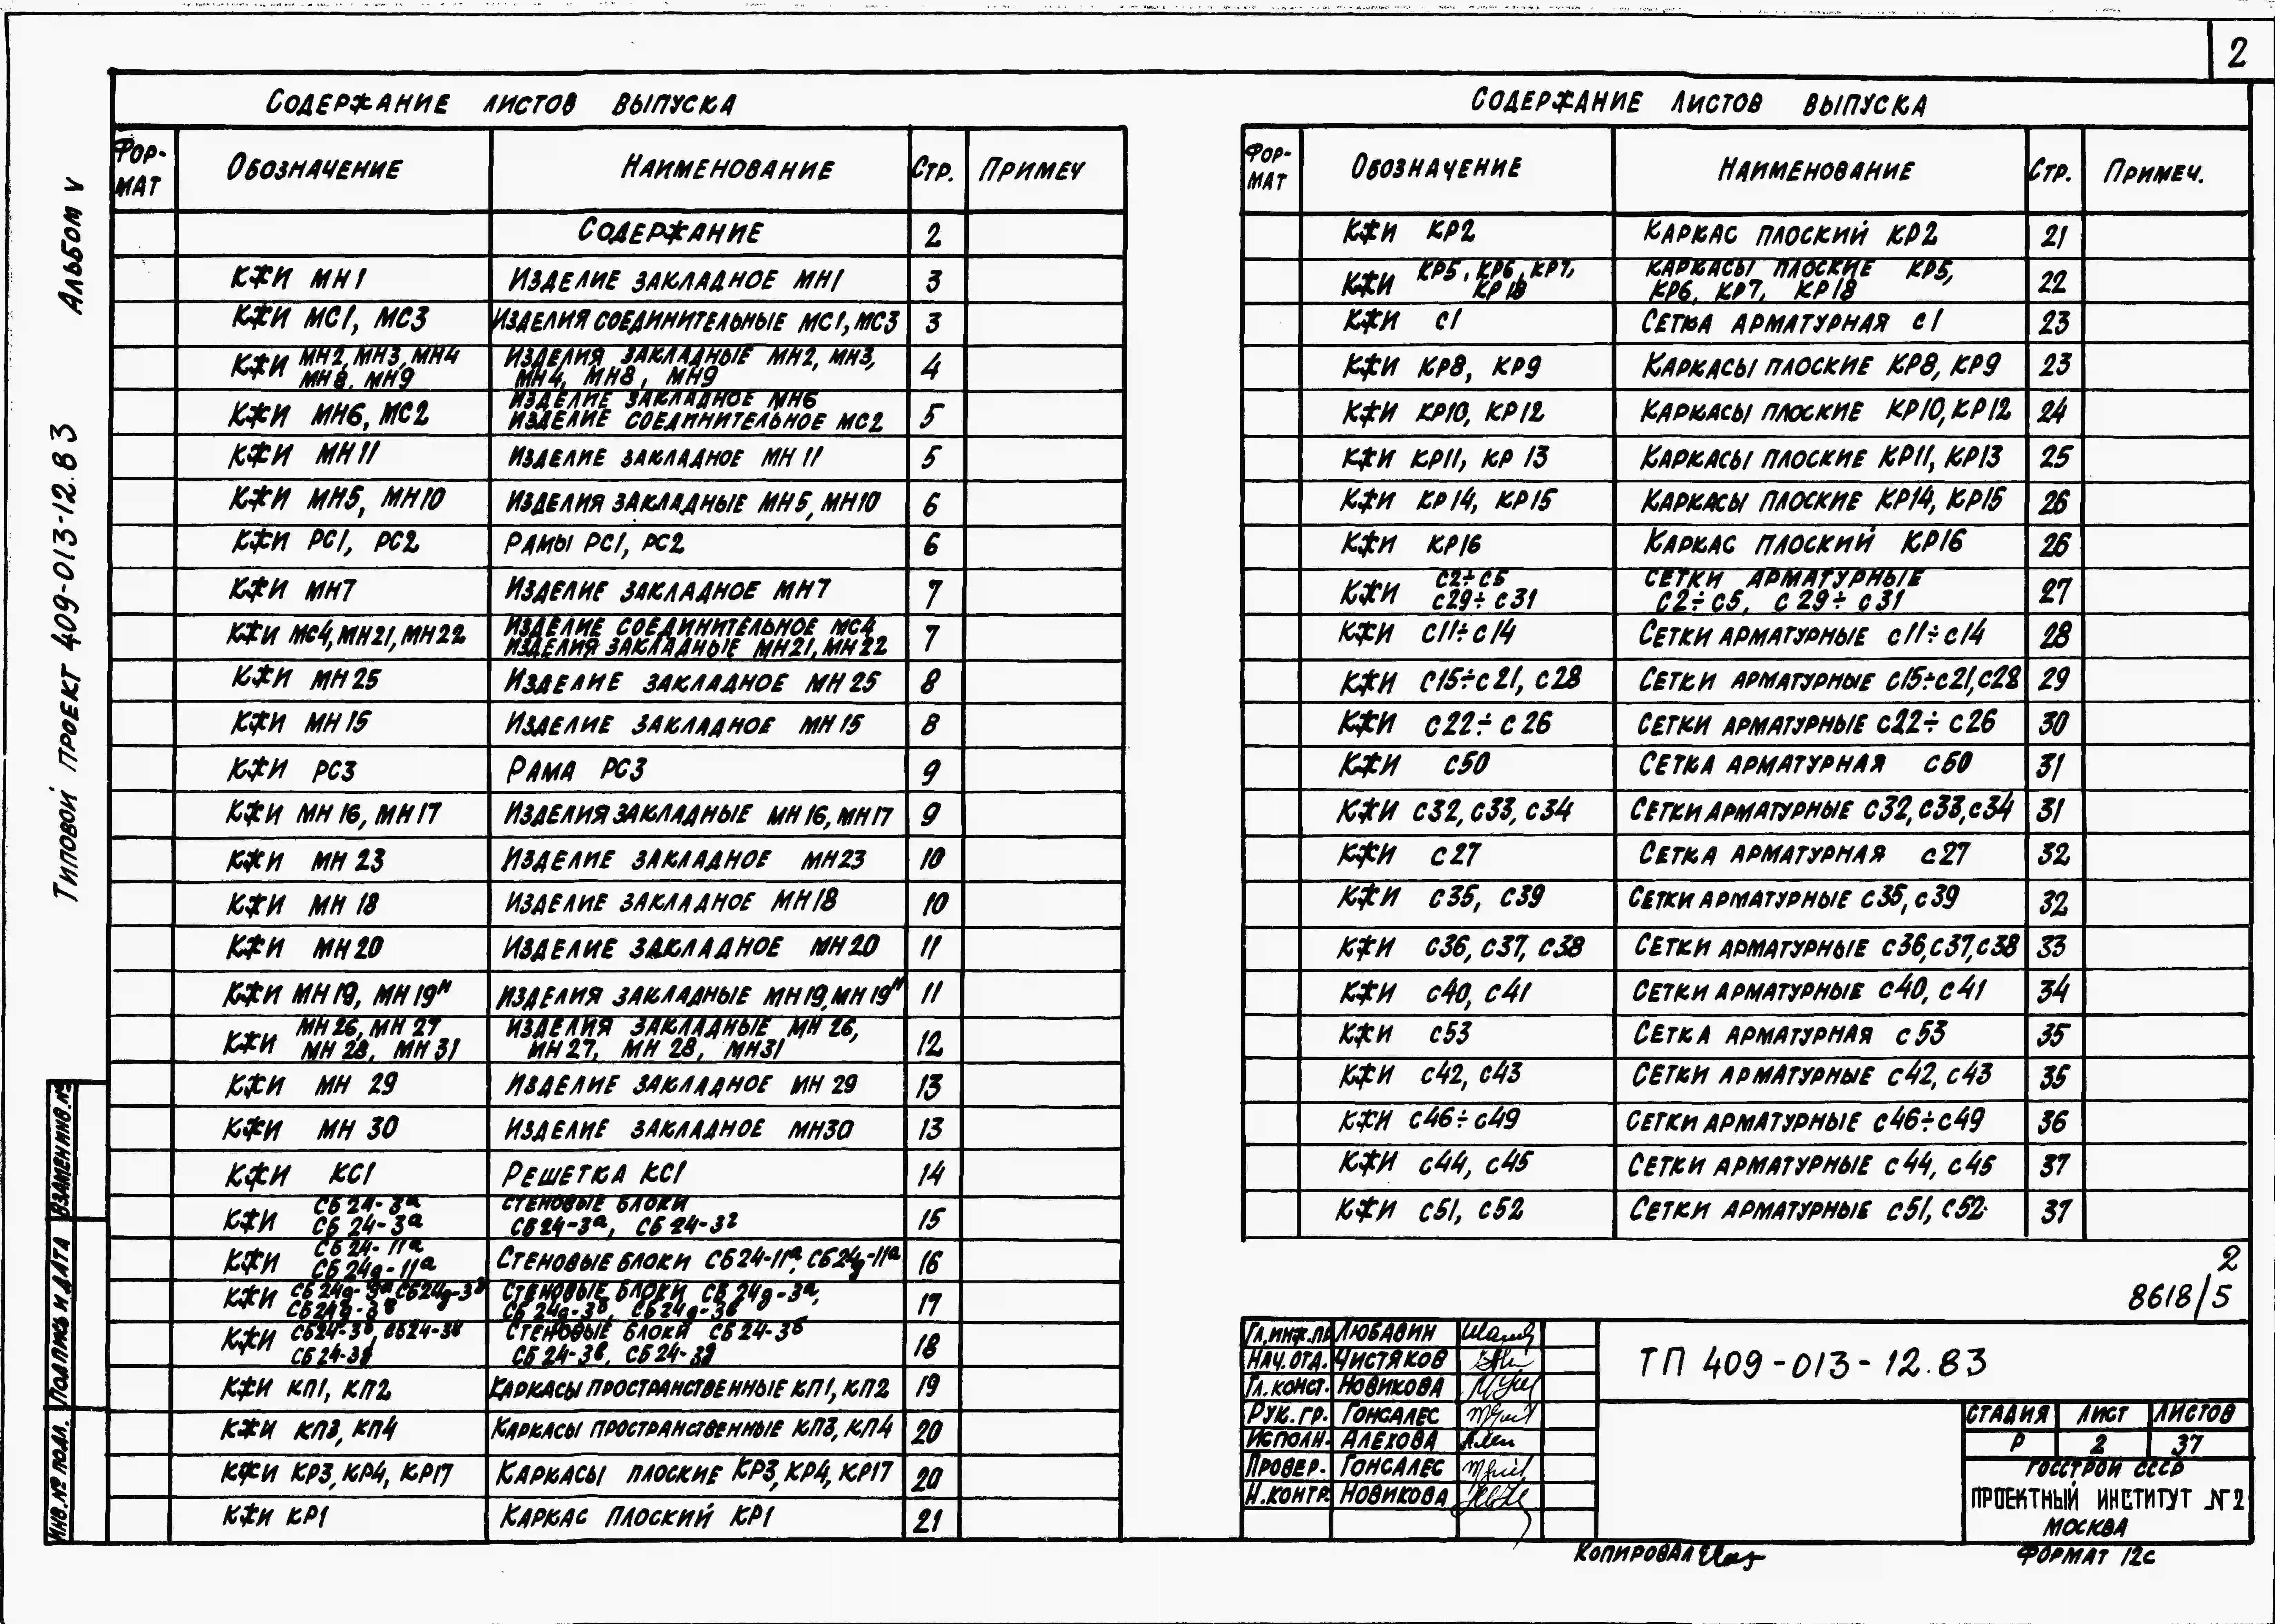 2
Типовой проект 409-013-12.83 Альбом V
Содержание листов выпуска
Фор-мат Обозначение Наименование Стр. Примеч
Содержание 2
КЖИ МН1 Изделие закладное МН1 3
КЖИ МС1, МС3 Изделия соединительные МС1, МС3 3
КЖИ МН2, МН3, МН4 МН8, МН9 Изделия закладные МН2, МН3, МН4, МН8, МН9 4
КЖИ МН6, МС2 Изделие закладное МН6 Изделие соединительное МС2 5
КЖИ МН11 Изделие закладное МН11 5
КЖИ МН5, МН10 Изделия закладные МН5, МН10 6
КЖИ РС1, РС2 Рамы РС1, РС2 6
КЖИ МН7 Изделие закладное МН7 7
КЖИ МС4, МН21, МН22 Изделие соединительное МС4 Изделия закладные МН21, МН22 7
КЖИ МН25 Изделие закладное МН25 8
КЖИ МН15 Изделие закладное МН15 8
КЖИ РС3 Рама РС3 9
КЖИ МН16, МН17 Изделия закладные МН16, МН17 9
КЖИ МН23 Изделие закладное МН23 10
КЖИ МН18 Изделие закладное МН18 10
КЖИ МН20 Изделие закладное МН20 11
КЖИ МН19, МН19н Изделия закладные МН19, МН19н 11
КЖИ МН26, МН27 МН28, МН31 Изделия закладные МН26, МН27, МН28, МН31 12
КЖИ МН29 Изделие закладное МН29 13
КЖИ МН30 Изделие закладное МН30 13
КЖИ КС1 Решетка КС1 14
КЖИ СБ24-3а СБ24-3а Стеновые блоки СБ24-3а, СБ24-3г 15
КЖИ СБ24-11а СБ24д-11а Стеновые блоки СБ24-11а, СБ24д-11а 16
КЖИ Стеновые блоки СБ24д-3а, СБ24д-3б, СБ24д-3в 17
КЖИ СБ24-3б, СБ24-3в СБ24-3д Стеновые блоки СБ24-3б СБ24-3в, СБ24-3д 18
КЖИ КП1, КП2 Каркасы пространственные КП1, КП2 19
КЖИ КП3, КП4 Каркасы пространственные КП3, КП4 20
КЖИ КР3, КР4, КР17 Каркасы плоские КР3, КР4, КР17 20
КЖИ КР1 Каркас плоский КР1 21
Содержание листов выпуска
Фор-мат Обозначение Наименование Стр. Примеч.
КЖИ КР2 Каркас плоский КР2 21
КЖИ КР5, КР6, КР7, КР18 Каркасы плоские КР5, КР6, КР7, КР18 22
КЖИ С1 Сетка арматурная С1 23
КЖИ КР8, КР9 Каркасы плоские КР8, КР9 23
КЖИ КР10, КР12 Каркасы плоские КР10, КР12 24
КЖИ КР11, КР13 Каркасы плоские КР11, КР13 25
КЖИ КР14, КР15 Каркасы плоские КР14, КР15 26
КЖИ КР16 Каркас плоский КР16 26
КЖИ С2÷С5 С29÷С31 Сетки арматурные С2÷С5, С29÷С31 27
КЖИ С11÷С14 Сетки арматурные С11÷С14 28
КЖИ С15÷С21, С28 Сетки арматурные С15÷С21, С28 29
КЖИ С22÷С26 Сетки арматурные С22÷С26 30
КЖИ С50 Сетка арматурная С50 31
КЖИ С32, С33, С34 Сетки арматурные С32, С33, С34 31
КЖИ С27 Сетка арматурная С27 32
КЖИ С35, С39 Сетки арматурные С35, С39 32
КЖИ С36, С37, С38 Сетки арматурные С36, С37, С38 33
КЖИ С40, С41 Сетки арматурные С40, С41 34
КЖИ С53 Сетка арматурная С53 35
КЖИ С42, С43 Сетки арматурные С42, С43 35
КЖИ С46÷С49 Сетки арматурные С46÷С49 36
КЖИ С44, С45 Сетки арматурные С44, С45 37
КЖИ С51, С52 Сетки арматурные С51, С52 37
2
8618/5
Гл.инж.пр Любавин
Нач.отд. Чистяков
Гл.конст. Новикова
Рук.гр. Гонсалес
Исполн. Алехова
Провер. Гонсалес
Н.контр. Новикова
ТП 409-013-12.83
Стадия Лист Листов
Р 2 37
Госстрой СССР
Проектный институт №2
Москва
Копировал
Формат 12с
Инв.№ подл. Подпись и дата Взамен инв.№